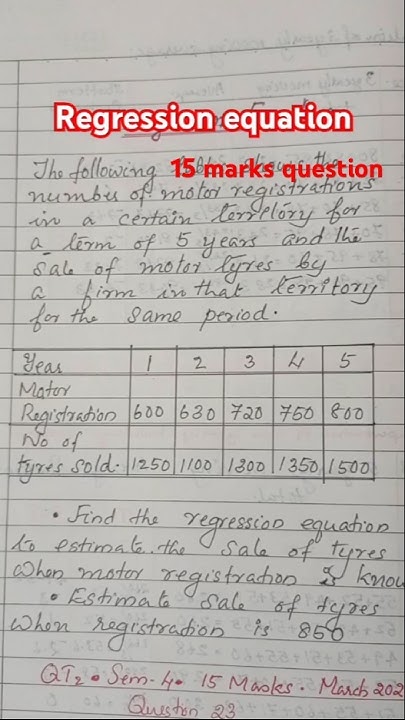 Regression equation
The following 15 marks question
number of motor registrations
in a certain territory for
a term of 5 years and the
sale of motor tyres by
a firm in that territory
for the same period.
Year 1 2 3 4 5
Motor
Registration 600 630 720 750 800
No of
tyres sold. 1250 1100 1300 1350 1500
• Find the regression equation
to estimate the sale of tyres
when motor registration is know
• Estimate sale of tyres
when registration is 850
QT2 • Sem-4 • 15 Marks • March 202
Question 23